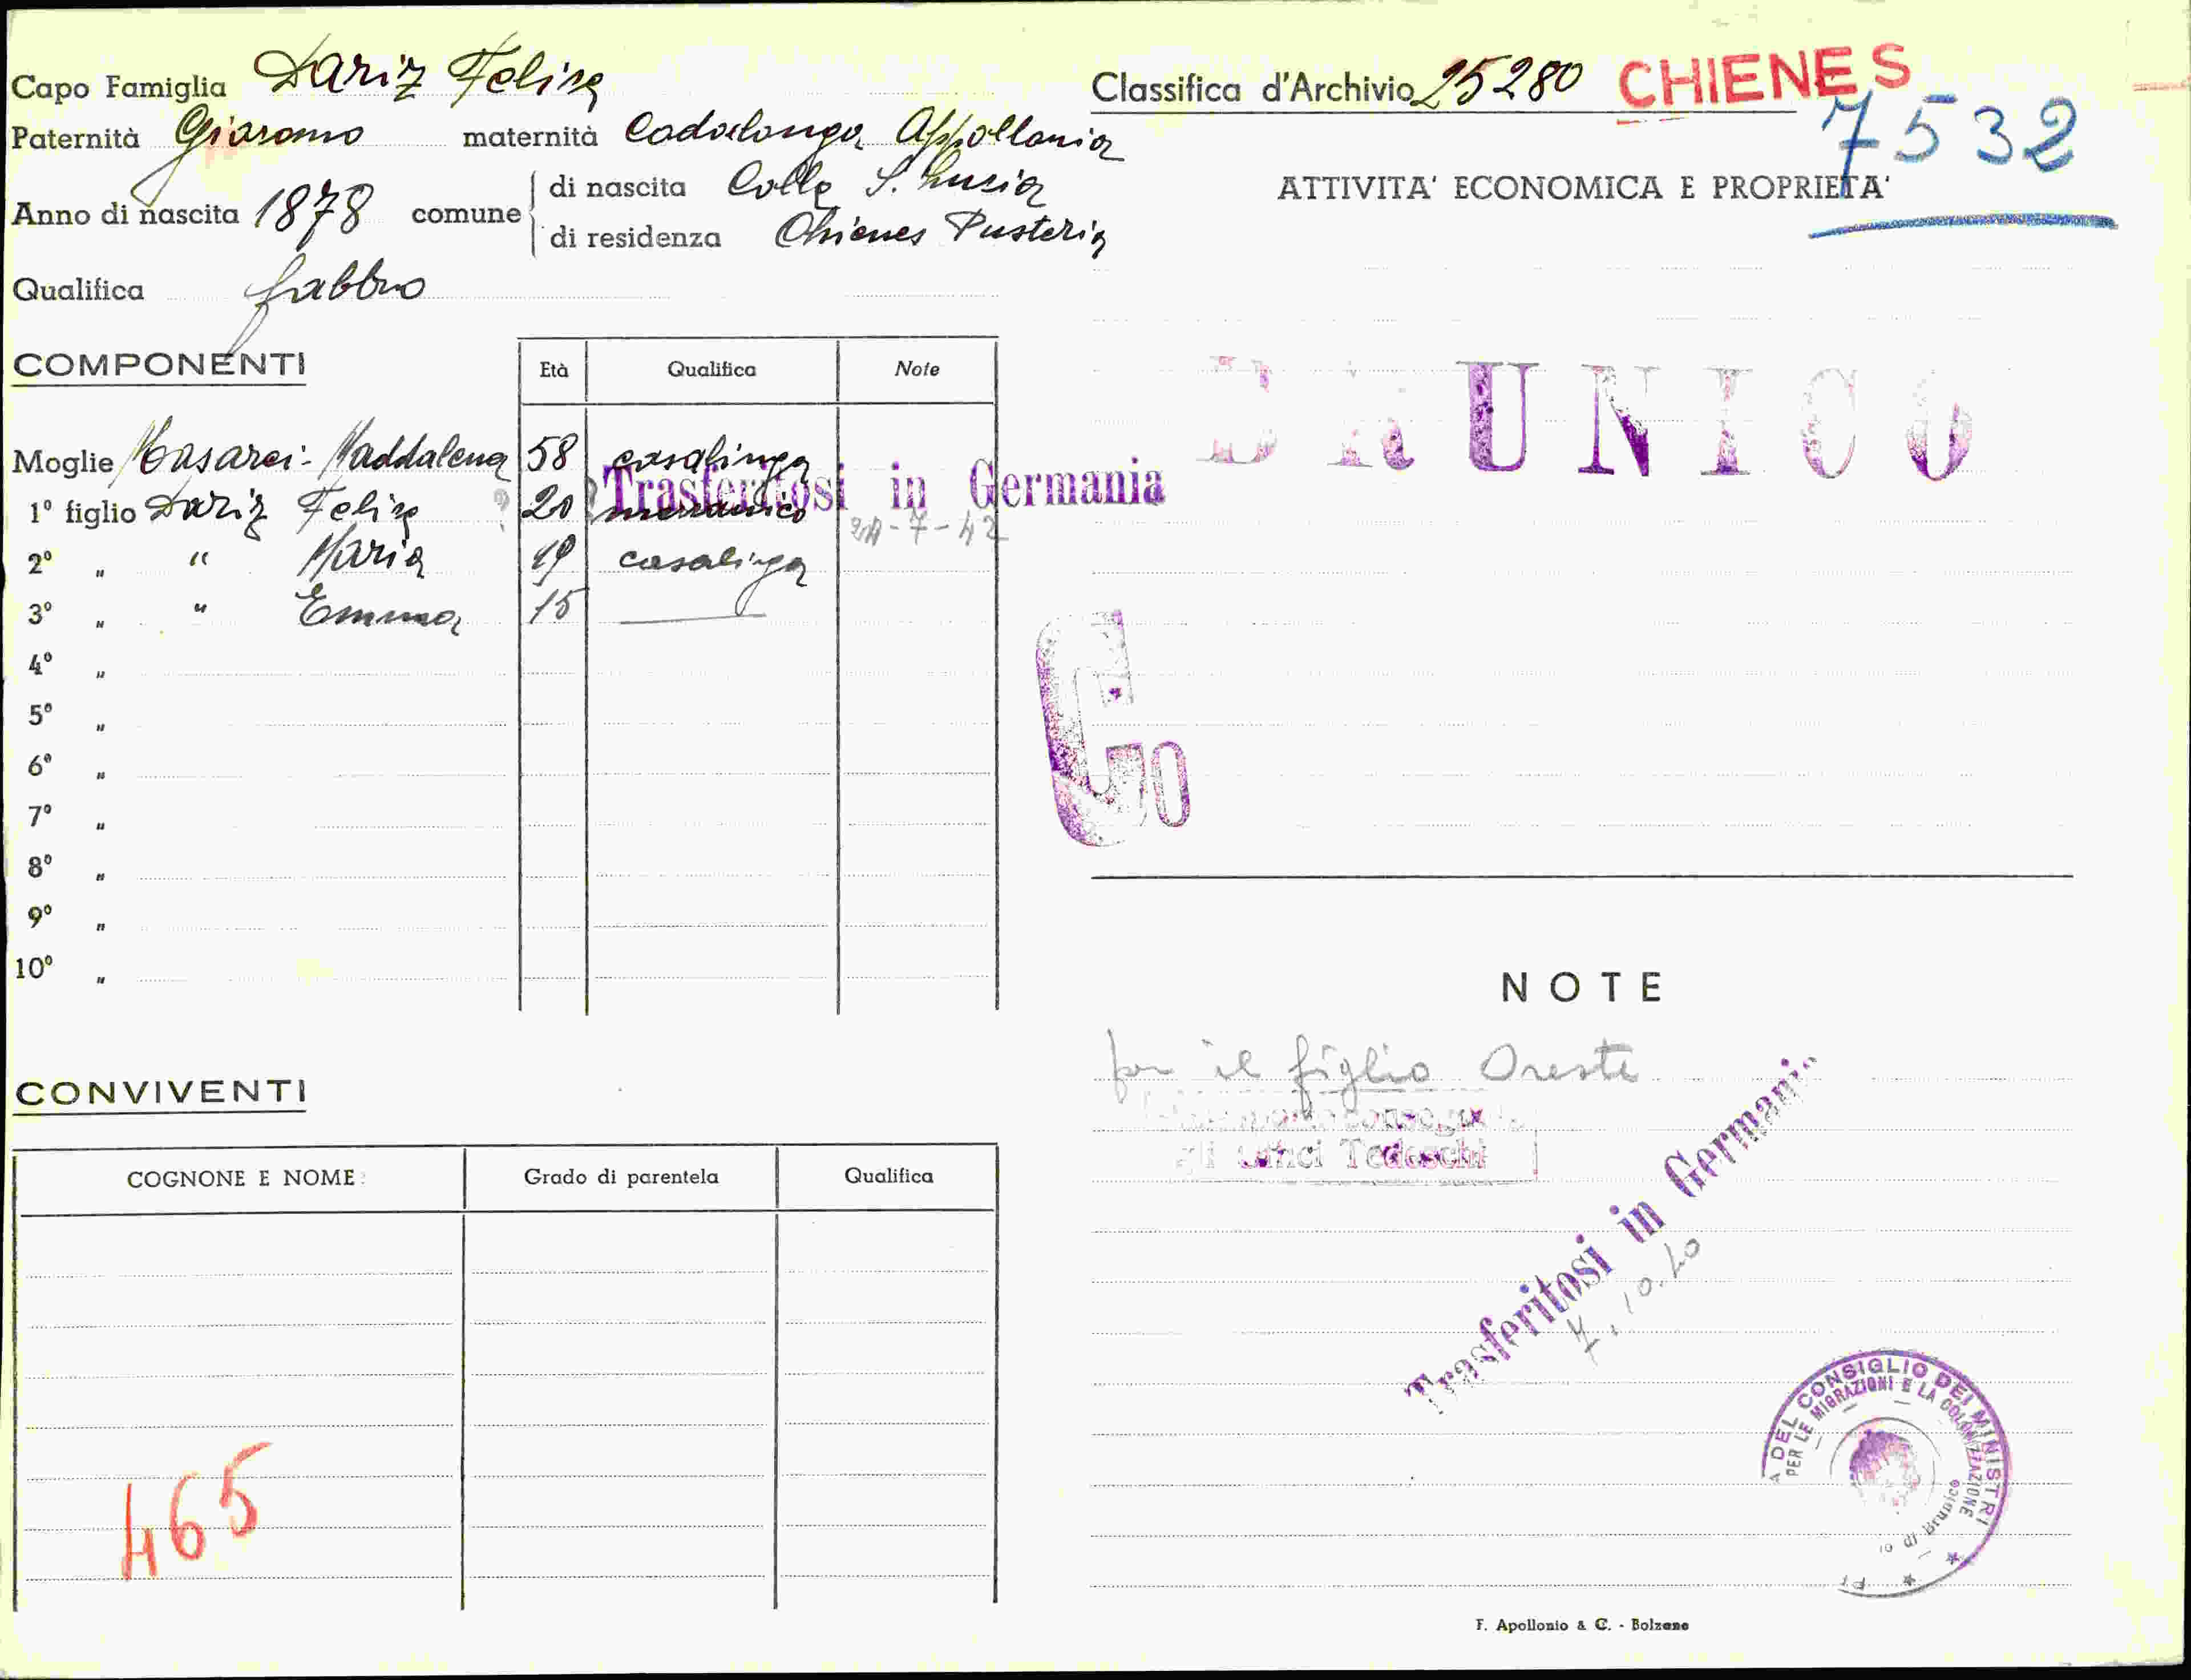 Capo Famiglia Dariz Felice
Paternità Giacomo maternità Codalonga Appollonia
Anno di nascita 1878 comune di nascita Colle S. Lucia
di residenza Chienes Pusteria
Qualifica fabbro
COMPONENTI Età Qualifica Note
Moglie Maddalena 58 casalinga
1º figlio Dariz Felice 20 meccanico
Trasferitosi in Germania
2º " " Maria 19 casalinga
3º " " Emma 15
4º "
5º "
6º "
7º "
8º "
9º "
10º "
CONVIVENTI
COGNONE E NOME Grado di parentela Qualifica
465
Classifica d'Archivio 25280 CHIENES
7532
ATTIVITA' ECONOMICA E PROPRIETA'
BRUNICO
Go
NOTE
per il figlio Oreste
Tedeschi
Trasferitosi in Germania
7.10.40
DEL CONSIGLIO DEI MINISTRI
PER LE MIGRAZIONI E LA COLONIZZAZIONE
di Brunico
F. Apollonio & C. - Bolzano